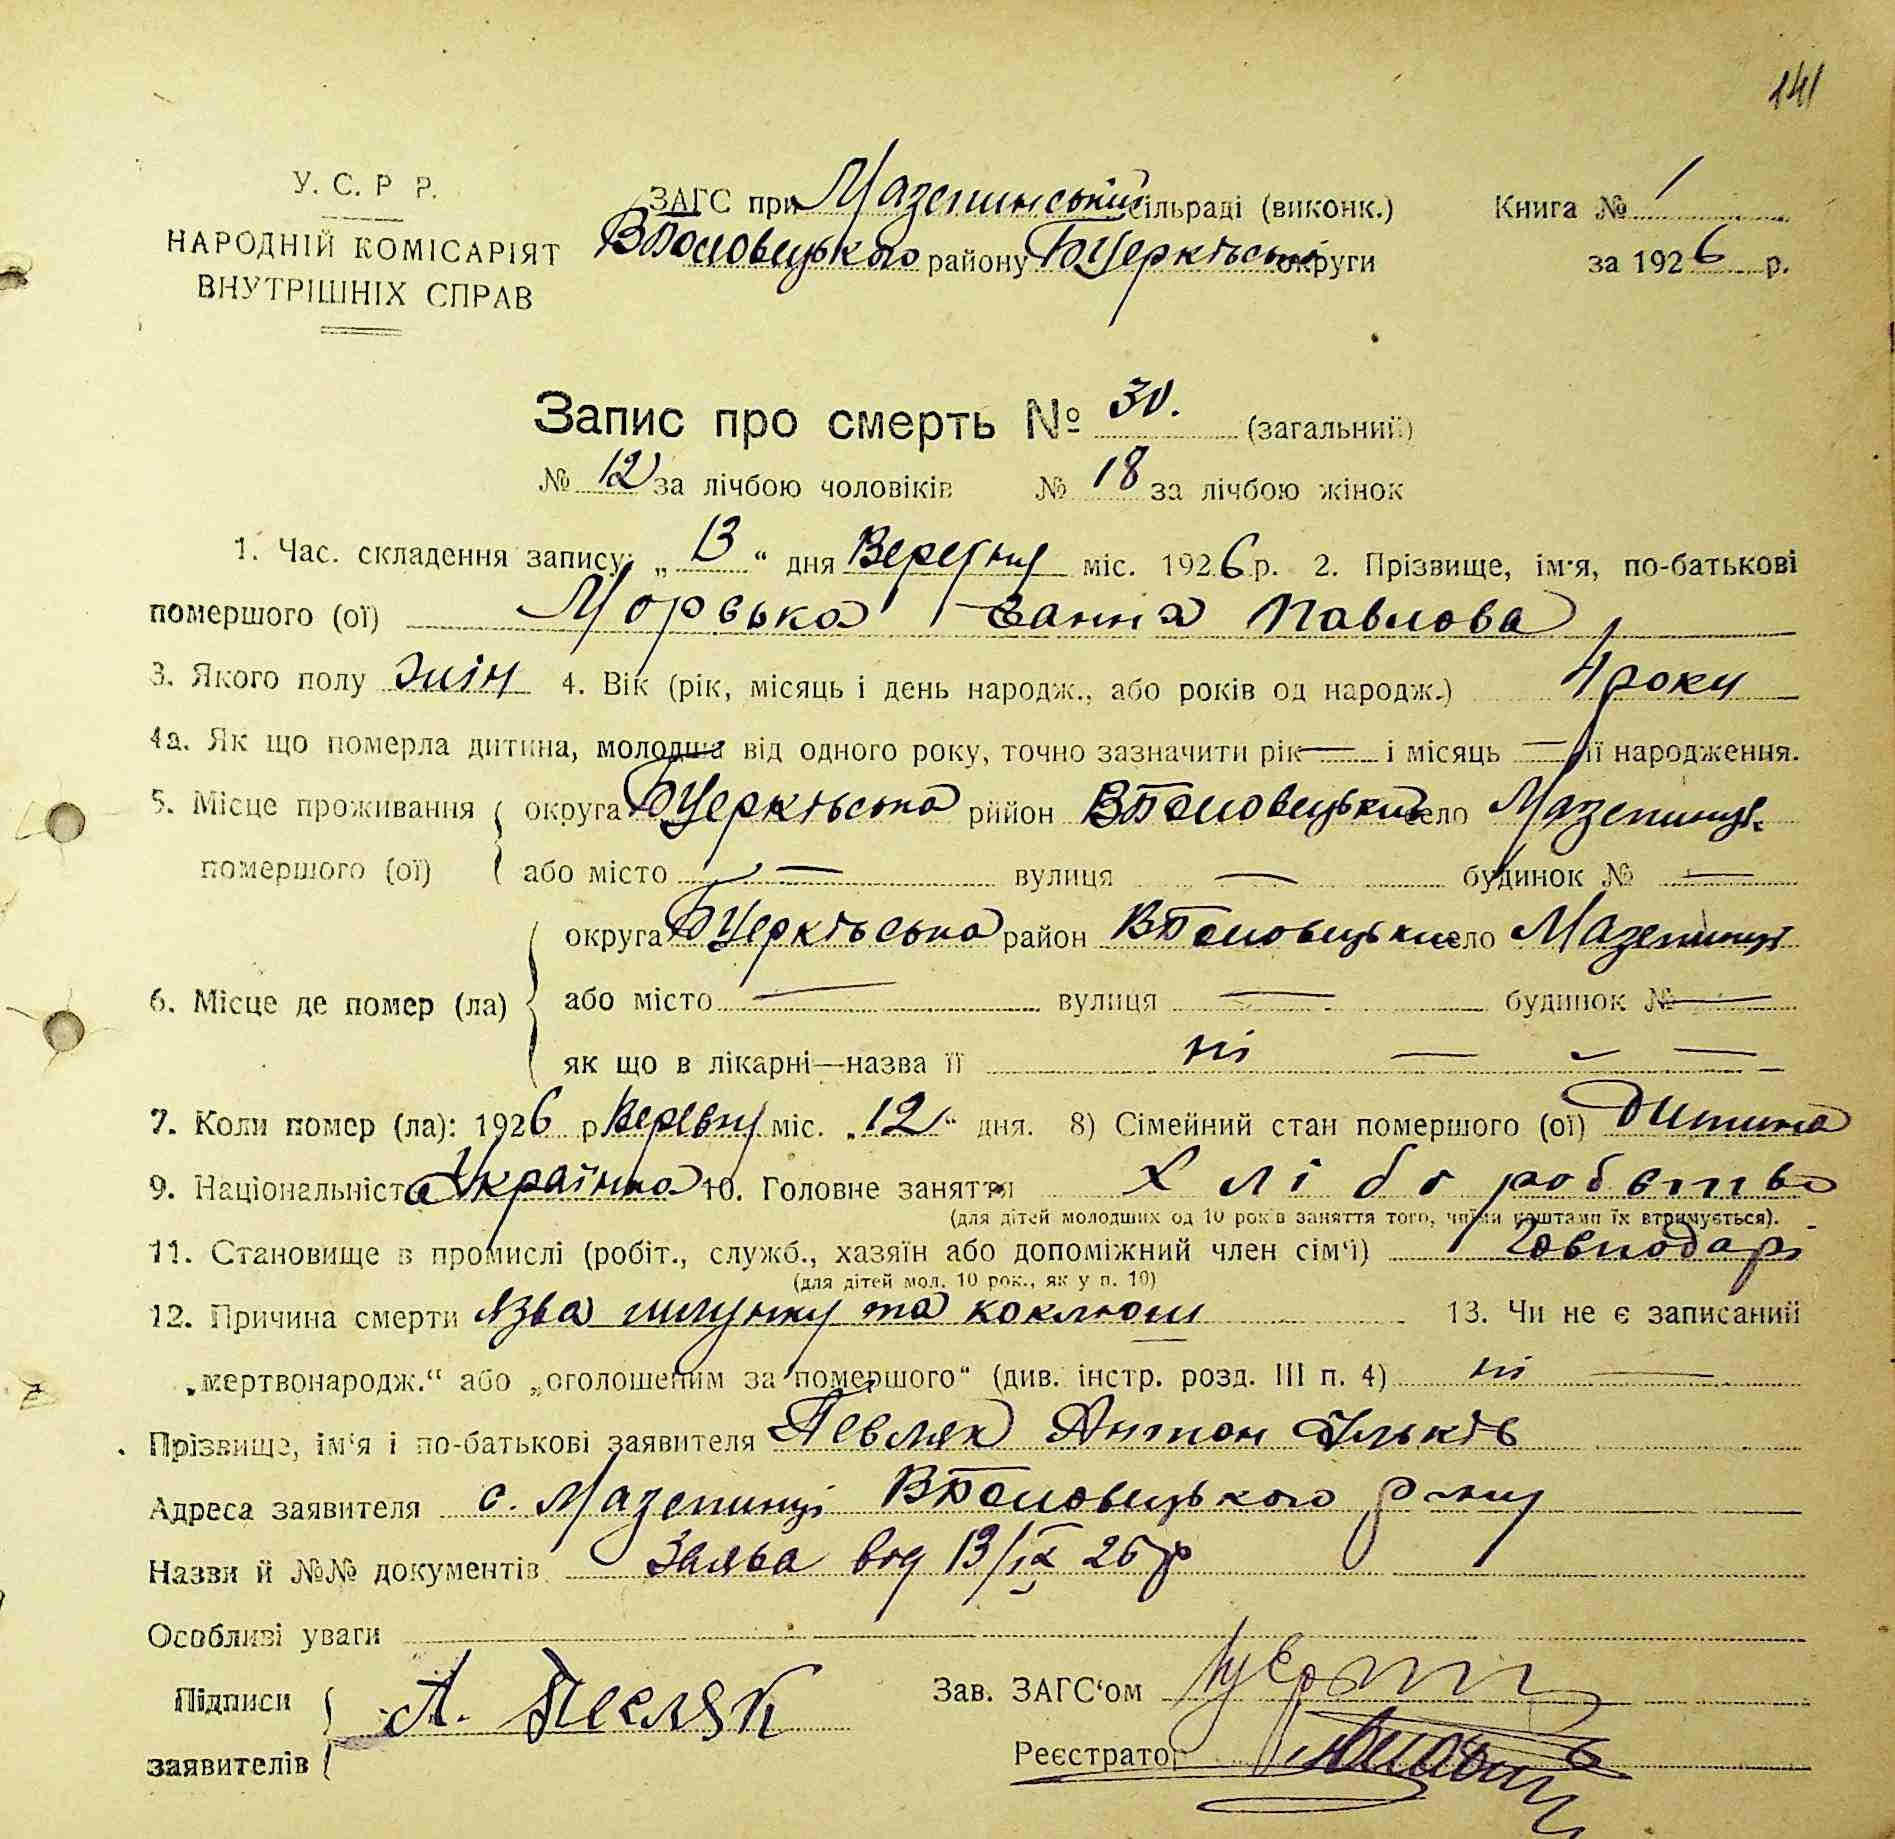 141
У. С. Р Р.
НАРОДНІЙ КОМІСАРІЯТ
ВНУТРІШНІХ СПРАВ
ЗАГС при Мазепинській сільраді (виконк.)
ВПоловецького району БЦерківської округи
Книга № 1
за 1926 р.
Запис про смерть № 30. (загальний)
№ 12 за лічбою чоловіків № 18 за лічбою жінок
1. Час. складення запису: „13“ дня Вересня міс. 1926 р. 2. Прізвище, ім'я, по-батькові
помершого (ої) Морська Ганна Павлова
3. Якого полу жін 4. Вік (рік, місяць і день народж., або років од народж.) 4 роки
4а. Як що померла дитина, молодша від одного року, точно зазначити рік — і місяць — її народження.
5. Місце проживання помершого (ої) округа БЦерківська район ВПоловецький село Мазепинці
або місто — вулиця — будинок № —
6. Місце де помер (ла) округа БЦерківська район ВПоловецький село Мазепинці
або місто — вулиця — будинок № —
як що в лікарні—назва її ні — — —
7. Коли помер (ла): 1926 р Вересня міс. „12“ дня. 8) Сімейний стан помершого (ої) Дитина
9. Національність Українка 10. Головне заняття Хліборобство
(для дітей молодших од 10 років заняття того, чиїми коштами їх втримується).
11. Становище в промислі (робіт., служб., хазяїн або допоміжний член сім'ї) Господарі
(для дітей мол. 10 рок., як у п. 10)
12. Причина смерти Язва шлунку та коклюш 13. Чи не є записаний
„мертвонародж.“ або „оголошеним за помершого“ (див. інстр. розд. III п. 4) ні —
Прізвище, ім'я і по-батькові заявителя Песляк Антон Ільків
Адреса заявителя с. Мазепинці ВПоловецького р-ну
Назви й №№ документів Заява від 13/IX 26 р
Особливі уваги
Підписи заявителів А. Песляк
Зав. ЗАГС'ом
Реєстратор